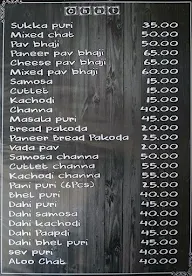 Sukka puri 35.00
Mixed chat 50.00
Pav bhaji 50.00
Paneer pav bhaji 65.00
Cheese pav bhaji 65.00
Mixed pav bhaji 60.00
Samosa 15.00
Cutlet 15.00
Kachodi 15.00
Channa 40.00
Masala puri 45.00
Bread pakoda 20.00
Paneer Bread Pakoda 25.00
Vada pav 20.00
Samosa channa 50.00
Cutlet channa 55.00
Kachodi channa 55.00
Pani puri (6Pcs) 25.00
Bhel puri 40.00
Dahi puri 45.00
Dahi samosa 40.00
Dahi kachodi 40.00
Dahi Paapdi 45.00
Dahi bhel puri 45.00
sev puri 40.00
Aloo Chat 40.00